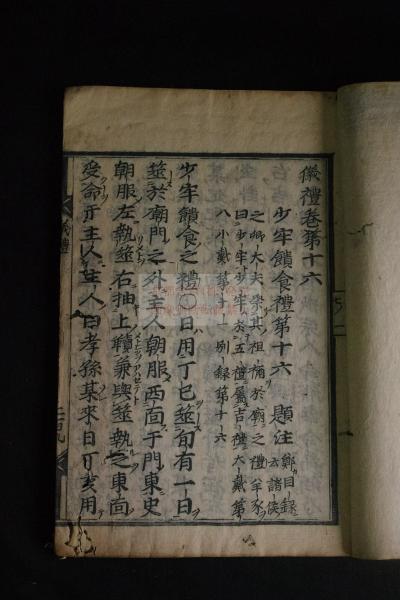 儀禮卷第十六
少牢饋食禮第十六 題注 鄭目錄云諸侯
之卿大夫祭其祖禰於廟之禮羊豕
曰少牢少牢於五禮屬吉禮大戴第
八小戴第十一別録第十六
少牢饋食之禮〇日用丁巳筮旬有一日
筮於廟門之外主人朝服西面于門東史
朝服左執筮右抽上韇兼與筮執之東面
受命于主人主人曰孝孫某來日丁亥用
儀禮
二百九